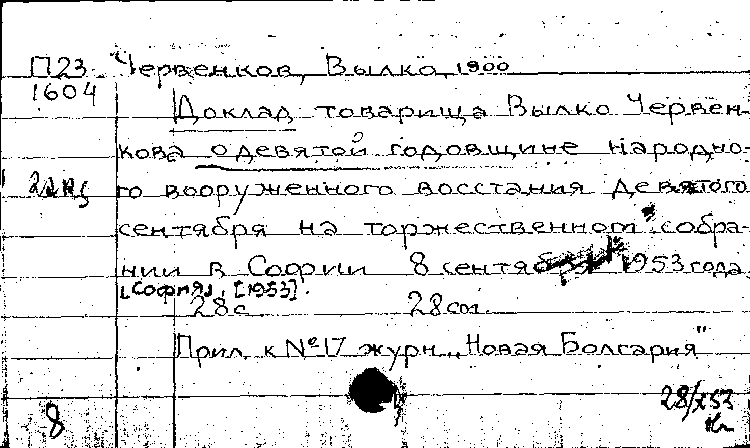 П23 Червенков, Вылко, 1900
1604
Доклад товарища Вылко Червен-
кова о девятой годовщине народно-
го вооруженного восстания девятого
сентября на торжественном собра-
нии в Софии 8 сентября 1953 года.
[София, [1953].
28с. 28см.
Прил. к №17 журн. „Новая Болгария"
8
28/X 53